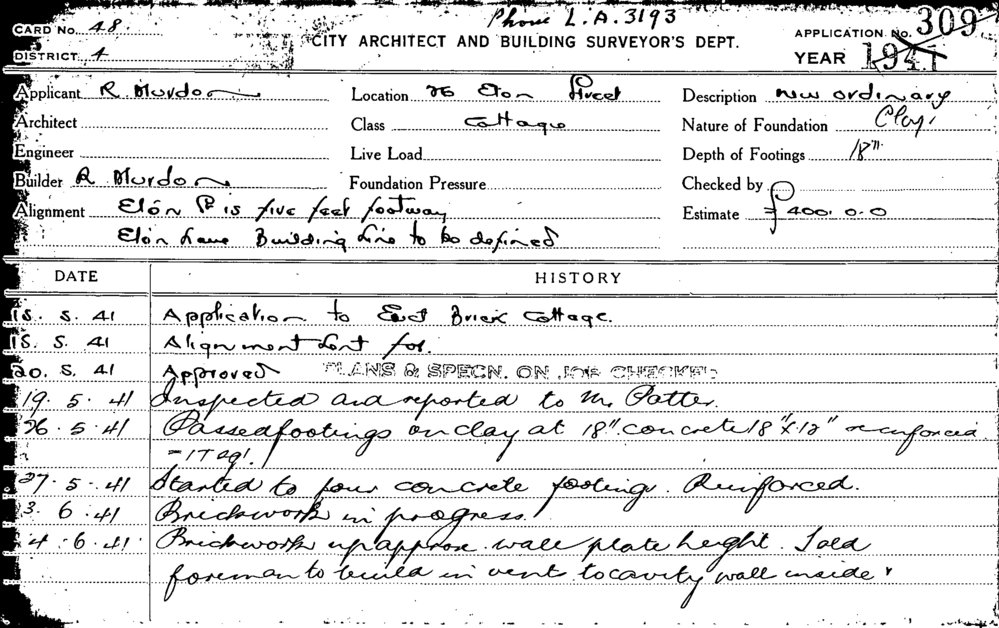 Phone L.A. 3193
CARD No. 48.
CITY ARCHITECT AND BUILDING SURVEYOR'S DEPT.
APPLICATION No. 309
DISTRICT 4
YEAR 1941
Applicant R Murdon
Location 26 Eton Street
Description New ordinary
Architect
Class Cottage
Nature of Foundation Clay.
Engineer
Live Load
Depth of Footings 18"
Builder R Murdon
Foundation Pressure
Checked by
Alignment Eton St is five feet footway
Estimate £400.0.0
Eton Lane Building Line to be defined
DATE HISTORY
15. 5. 41 Application to Erect Brick Cottage.
15. 5. 41 Alignment Sent for.
20. 5. 41 Approved PLANS & SPECN. ON JOB CHECKED
19. 5. 41 Inspected and reported to Mr. Potter.
26. 5. 41 Passed footings on clay at 18" concrete 18" x 12" reinforced
27. 5. 41 Started to pour concrete footings. Reinforced.
3. 6. 41 Brickwork in progress.
4. 6. 41. Brickwork up approx. wall plate height. Told
foreman to build in vent to cavity wall inside